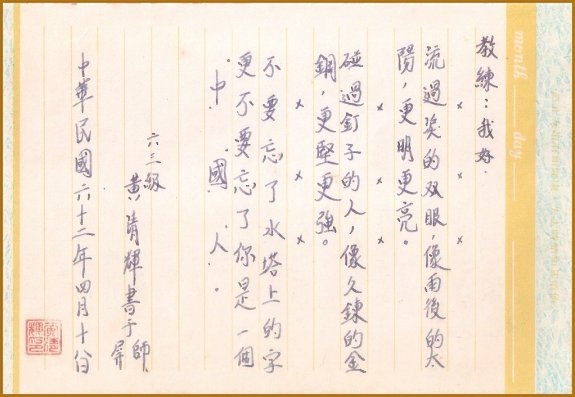 教練：我好.
× × ×
流過淚的双眼，像雨後的太
陽，更明更亮。
× × ×
碰過釘子的人，像久鍊的金
鋼，更堅更強。
× × ×
不要忘了水塔上的字
更不要忘了你是一個
·中·國·人·。
六三級
黃清輝書于屏師
中華民國六十二年四月十份
month day